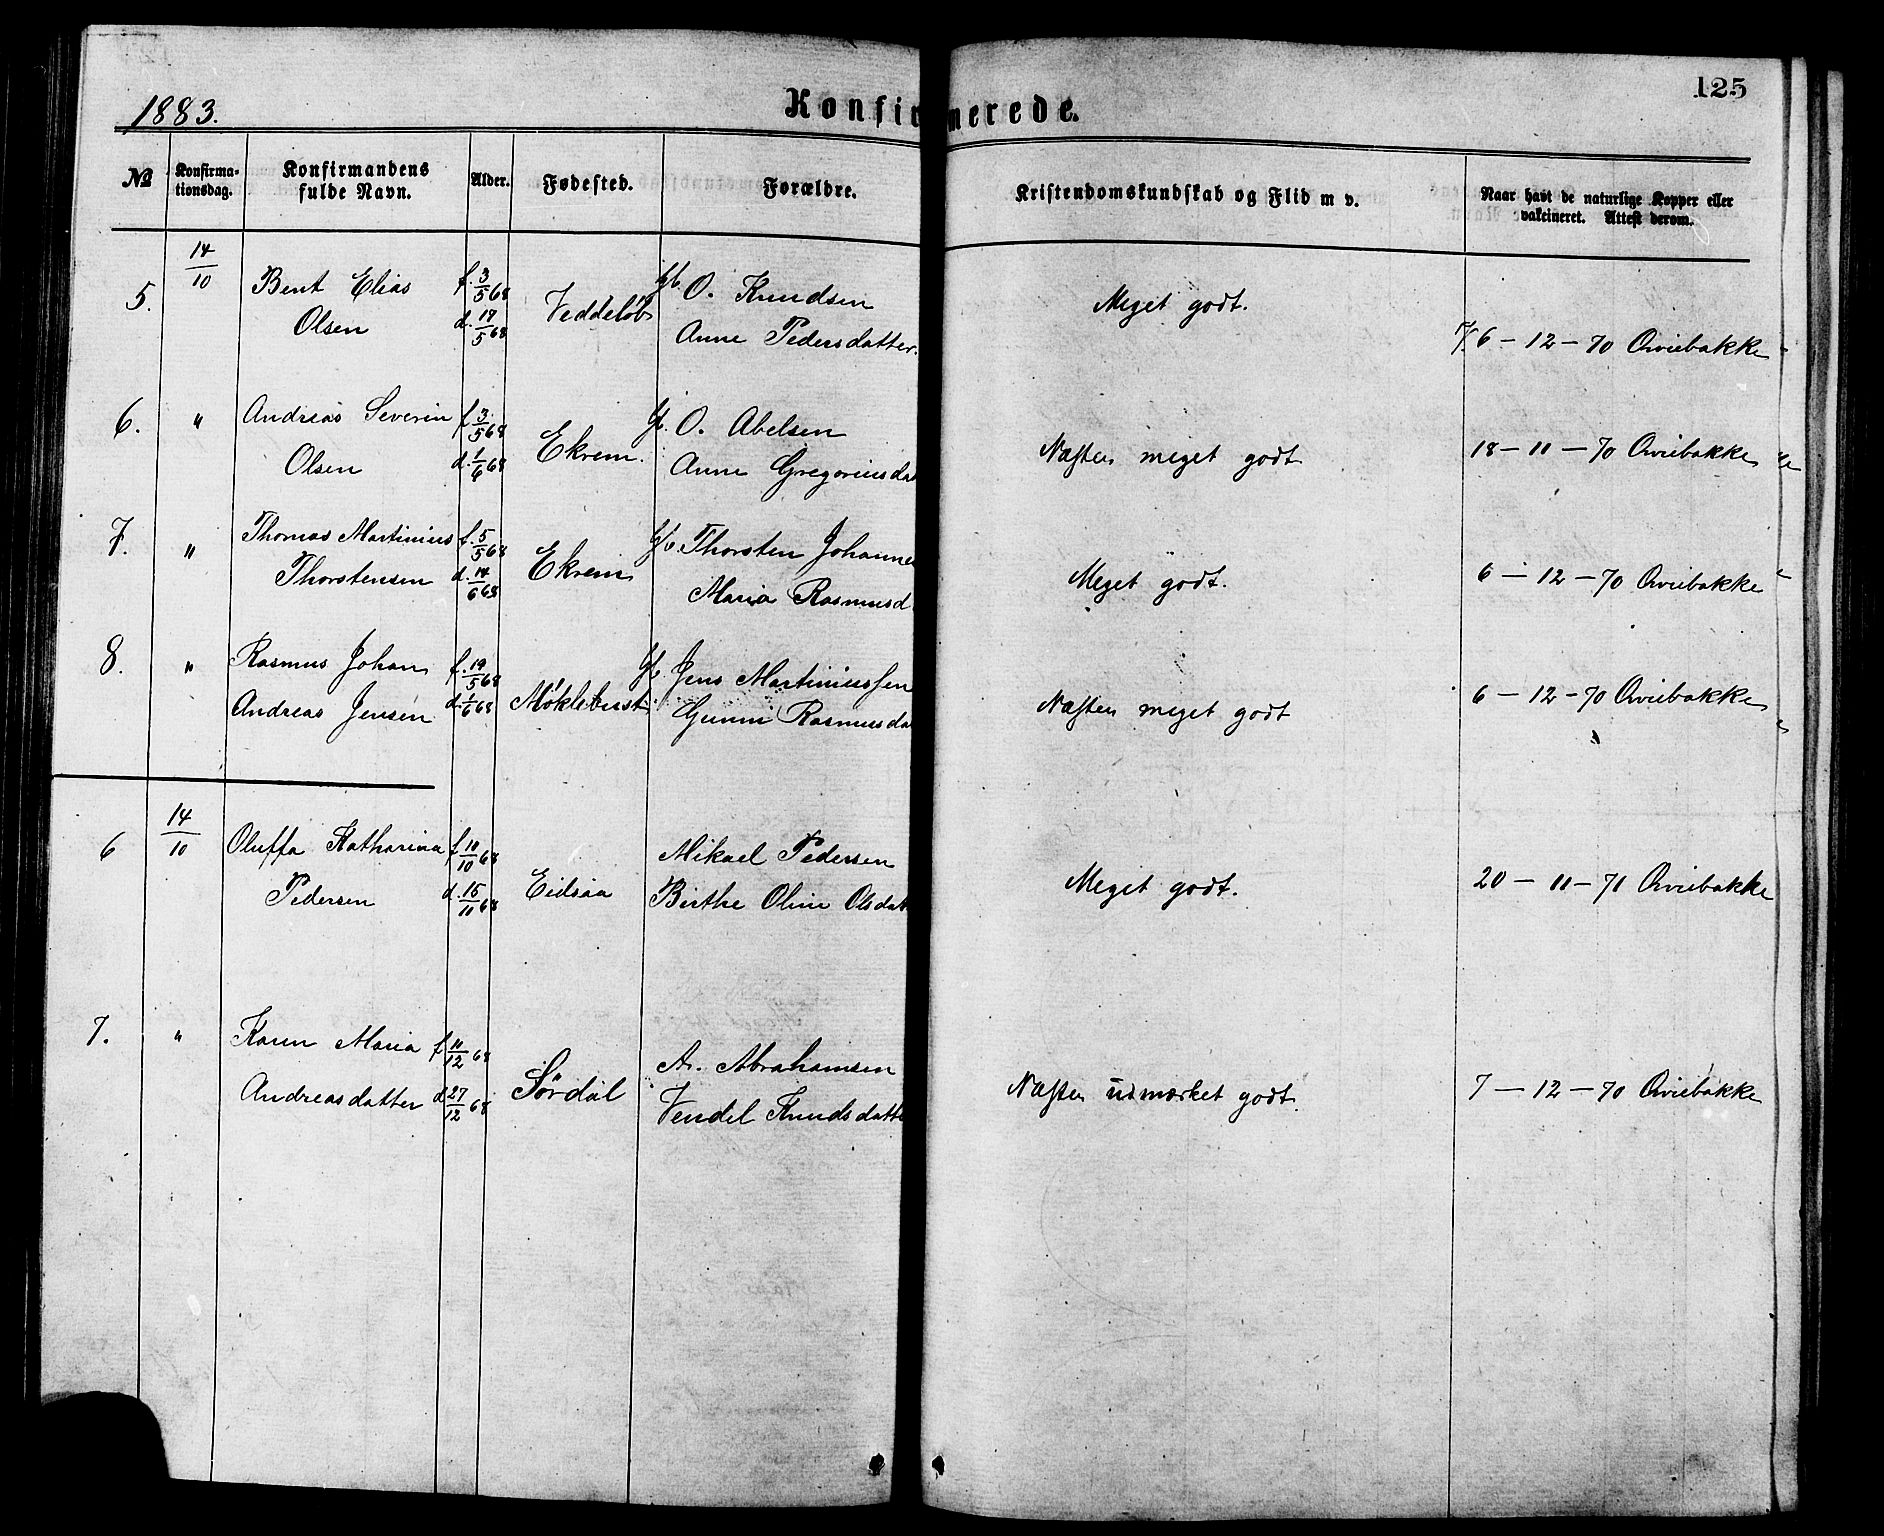 125
1883.
Konfirmerede.
No Konfirma-tionsdag. Konfirmandens fulde Navn. Alder. Fødested. Forældre. Kristendomskundskab og Flid m v. Naar havt de naturlige Kopper eller vakcineret. Attest derom.
5. 14/10 Bent Elias f. 3/5 68 Veddeløb O. Knudsen Meget godt.
Olsen d. 17/5 68 Anne Pedersdatter. 6 - 12 - 70 Qviebakke
6. " Andreas Severin f. 3/5 68 Ekrem. O. Abelsen Næsten meget godt 18 - 11 - 70 Qviebakke
Olsen d. 1/6 68 Anne Gregoriusda
7. " Thomas Martinius f. 5/5 68 Ekrem Thorsten Johanne Meget godt. 6 - 12 - 70 Qviebakke
Thorstensen d. 14/6 68 Maria Rasmusd
8. " Rasmus Johan f. 19/5 68 Møklebust Jens Martiniussen Næsten meget godt 6 - 12 - 70 Qviebakke
Andreas Jensen d. 1/6 68 Gunni Rasmusda
6 14/10 Oluffa Katharina f. 10/10 68 Eidsaa Mikael Pedersen Meget godt. 20 - 11 - 71 Qviebakke
Pedersen d. 15/11 68 Birthe Oline Olsdat
7. " Karen Maria f. 11/12 68 Sørdal A. Abrahamsen Næsten udmærket godt. 7 - 12 - 70 Qviebakke
Andreasdatter d. 27/12 68 Vendel Knudsdatte